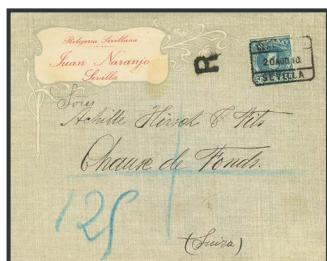 Relojería Sevillana
Juan Naranjo
Sevilla
R
SEVILLA
Sres
Achille Hirsch & Fils
Chaux de Fonds.
125
(Suiza)